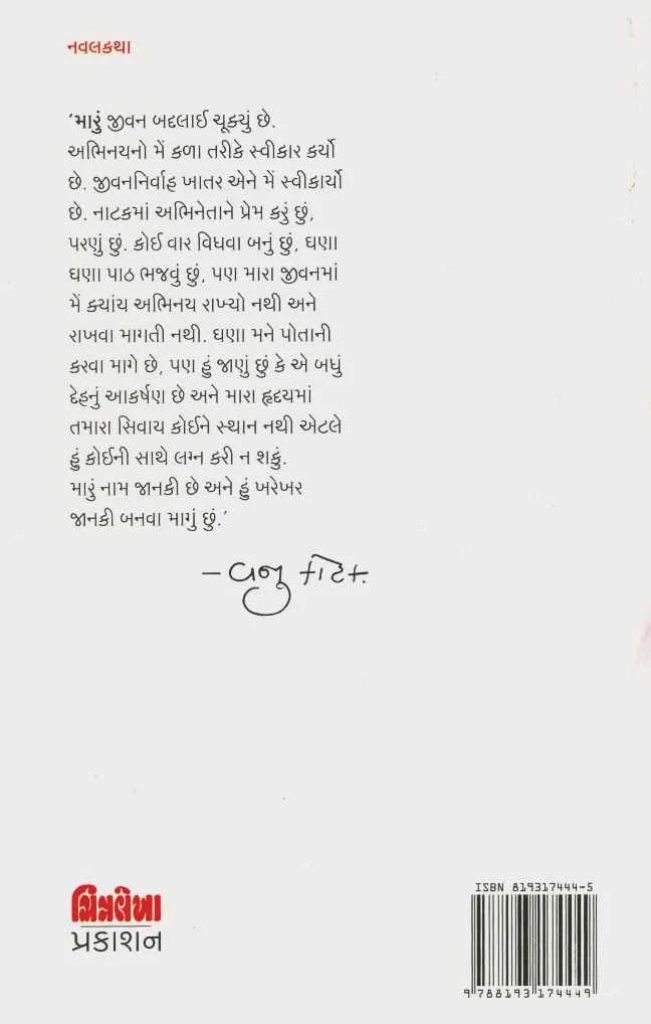 નવલકથા
‘મારું જીવન બદલાઈ ચૂક્યું છે.
અભિનયનો મેં કળા તરીકે સ્વીકાર કર્યો
છે. જીવનનિર્વાહ ખાતર એને મેં સ્વીકાર્યો
છે. નાટકમાં અભિનેતાને પ્રેમ કરું છું,
પરણું છું. કોઈ વાર વિધવા બનું છું, ઘણા
ઘણા પાઠ ભજવું છું, પણ મારા જીવનમાં
મેં ક્યાંય અભિનય રાખ્યો નથી અને
રાખવા માગતી નથી. ઘણા મને પોતાની
કરવા માગે છે, પણ હું જાણું છું કે એ બધું
દેહનું આકર્ષણ છે અને મારા હૃદયમાં
તમારા સિવાય કોઈને સ્થાન નથી એટલે
હું કોઈની સાથે લગ્ન કરી ન શકું.
મારું નામ જાનકી છે અને હું ખરેખર
જાનકી બનવા માગું છું.’
– વજુ કોટક
ચિત્રલેખા
પ્રકાશન
ISBN 819317444-5
9 788193 174449